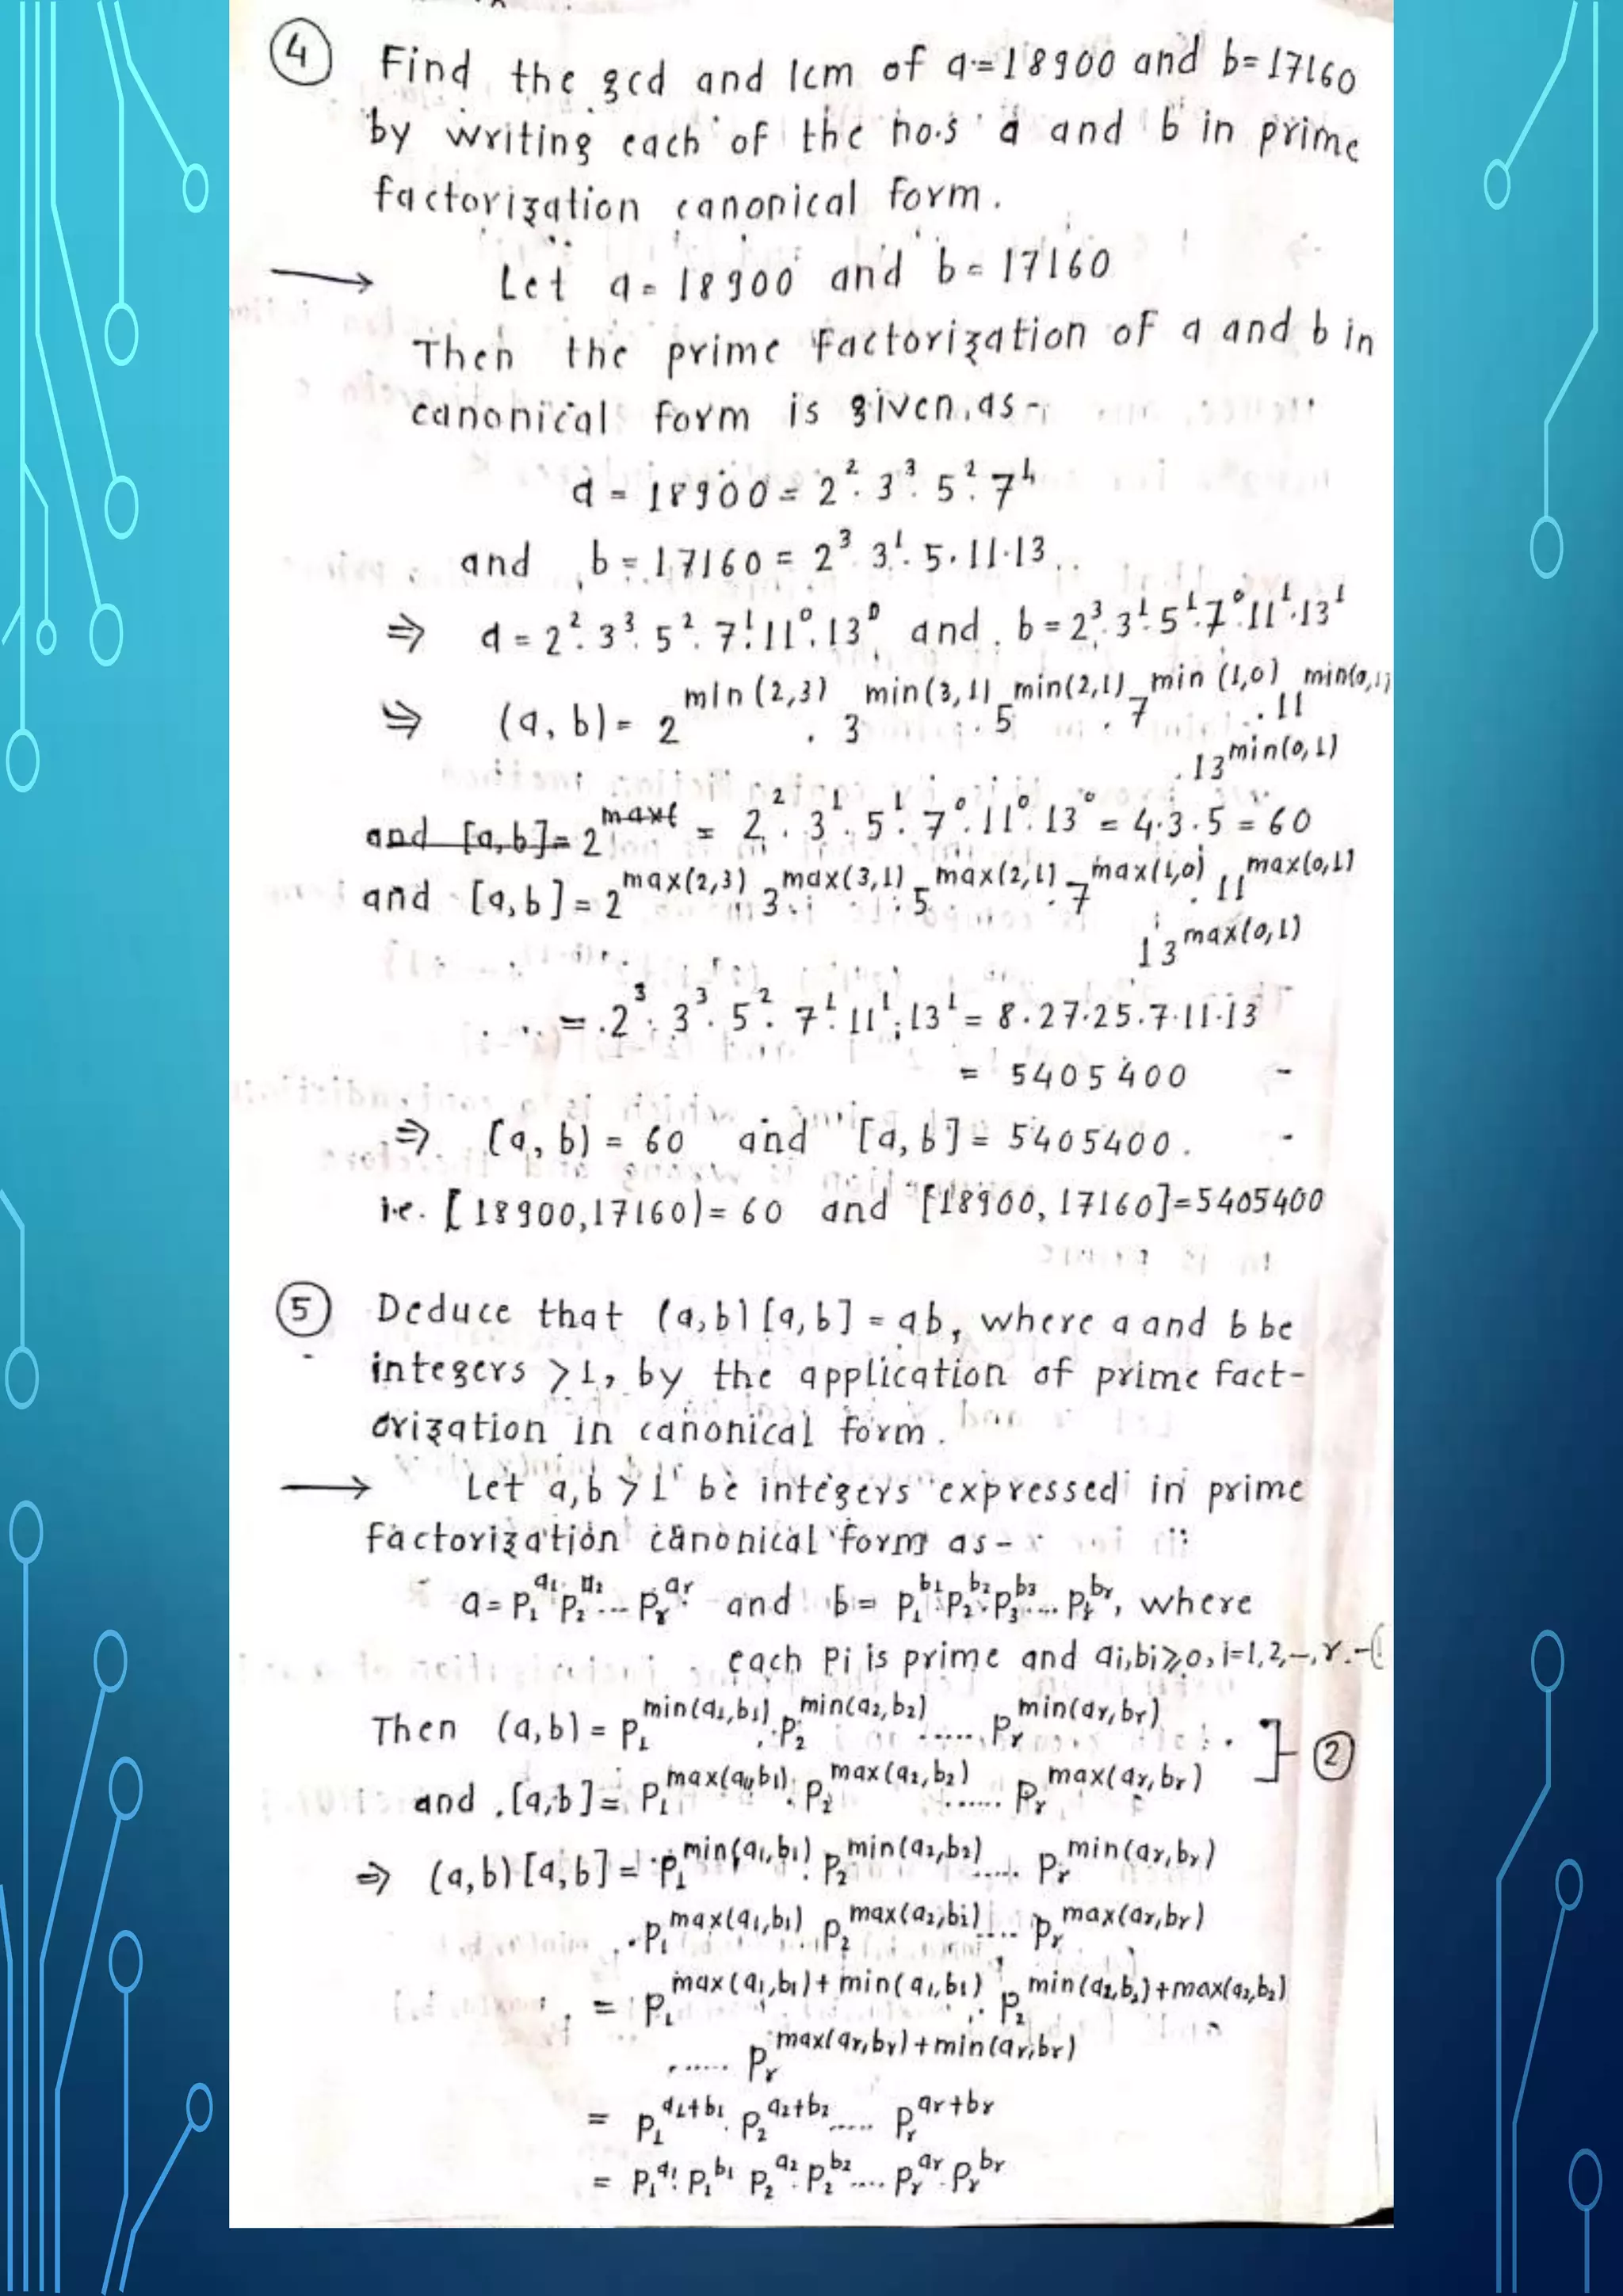 ④ Find the gcd and lcm of a=18900 and b=17160
by writing each of the no.s a and b in prime
factorization canonical form.
→ Let a=18900 and b=17160
Then the prime factorization of a and b in
canonical form is given as-
a = 18900 = 2². 3³. 5². 7⁴
and b = 17160 = 2³ 3¹. 5. 11.13
⇒ a = 2². 3³. 5². 7¹. 11⁰. 13⁰ and b = 2³. 3¹. 5¹. 7⁰. 11¹. 13¹
⇒ (a, b) = 2^min(2,3) . 3^min(3,1) . 5^min(2,1) . 7^min(1,0) . 11^min(0,1)
. 13^min(0,1)
and [a,b] = 2^max( = 2². 3¹. 5¹. 7⁰. 11⁰. 13⁰ = 4.3.5 = 60
and [a,b] = 2^max(2,3) . 3^max(3,1) . 5^max(2,1) . 7^max(1,0) . 11^max(0,1)
13^max(0,1)
= 2³. 3³. 5². 7¹. 11¹. 13¹ = 8.27.25.7.11.13
= 5405400
⇒ (a, b) = 60 and [a, b] = 5405400.
i.e. [18900,17160) = 60 and [18900, 17160]=5405400
⑤ Deduce that (a,b) [a,b] = ab, where a and b be
integers >1, by the application of prime fact-
orization in canonical form.
→ Let a,b > 1 be integers expressed in prime
factorization canonical form as-
a = P₁^a₁ P₂^a₂ ... Pᵣ^aᵣ and b = P₁^b₁. P₂^b₂. P₃^b₃ ... Pᵣ^bᵣ, where
each Pi is prime and ai,bi ≥ 0, i=1,2,-,r. -(
Then (a,b) = P₁^min(a₁,b₁) . P₂^min(a₂,b₂) ...... Pᵣ^min(aᵣ,bᵣ) .
] ②
and [a,b] = P₁^max(a₁,b₁) . P₂^max(a₂,b₂) ...... Pᵣ^max(aᵣ,bᵣ)
⇒ (a,b) [a,b] = P₁^min(a₁,b₁) . P₂^min(a₂,b₂) ..... Pᵣ^min(aᵣ,bᵣ)
. P₁^max(a₁,b₁) P₂^max(a₂,b₂) .... Pᵣ^max(aᵣ,bᵣ)
= P₁^max(a₁,b₁)+min(a₁,b₁) . P₂^min(a₂,b₂)+max(a₂,b₂)
...... Pᵣ^max(aᵣ,bᵣ)+min(aᵣ,bᵣ)
= P₁^a₁+b₁ . P₂^a₂+b₂ ..... Pᵣ^aᵣ+bᵣ
= P₁^a₁. P₁^b₁ P₂^a₂. P₂^b₂ .... Pᵣ^aᵣ. Pᵣ^bᵣ